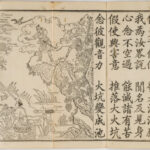 我為汝略說　聞名及見身
心念不空過　能滅諸有苦
假使興害意　推落大火坑
念彼觀音力　火坑變成池